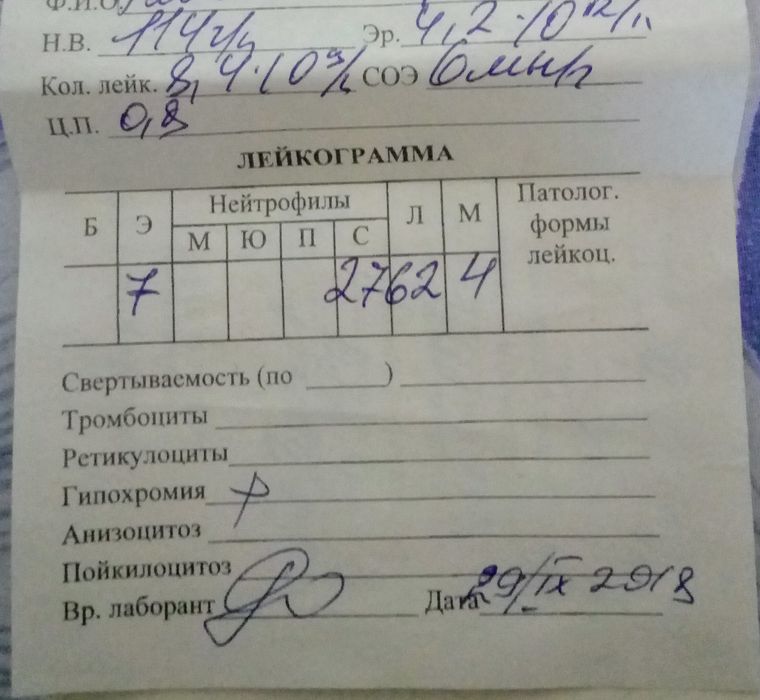 Ф.И.О.
Н.В. 114 г/л Эр. 4,2·10¹²/л
Кол. лейк. 8,4·10⁹/л СОЭ 6 мм/ч
Ц.П. 0,8
ЛЕЙКОГРАММА
Б Э Нейтрофилы Л М Патолог. формы лейкоц.
М Ю П С
7 27 62 4
Свертываемость (по ______)
Тромбоциты
Ретикулоциты
Гипохромия +
Анизоцитоз
Пойкилоцитоз
Вр. лаборант Дата 29/IX 2018